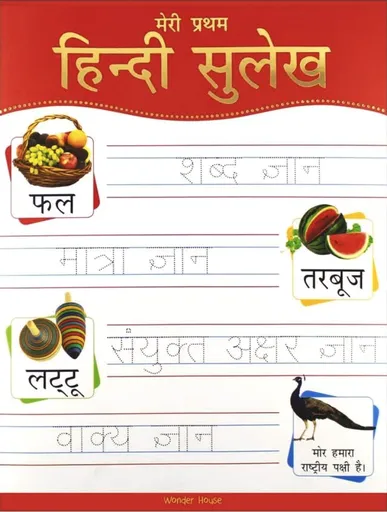 मेरी प्रथम
हिन्दी सुलेख
फल
शब्द ज्ञान
मात्रा ज्ञान
तरबूज
लट्टू
संयुक्त अक्षर ज्ञान
वाक्य ज्ञान
मोर हमारा
राष्ट्रीय पक्षी है।
Wonder House